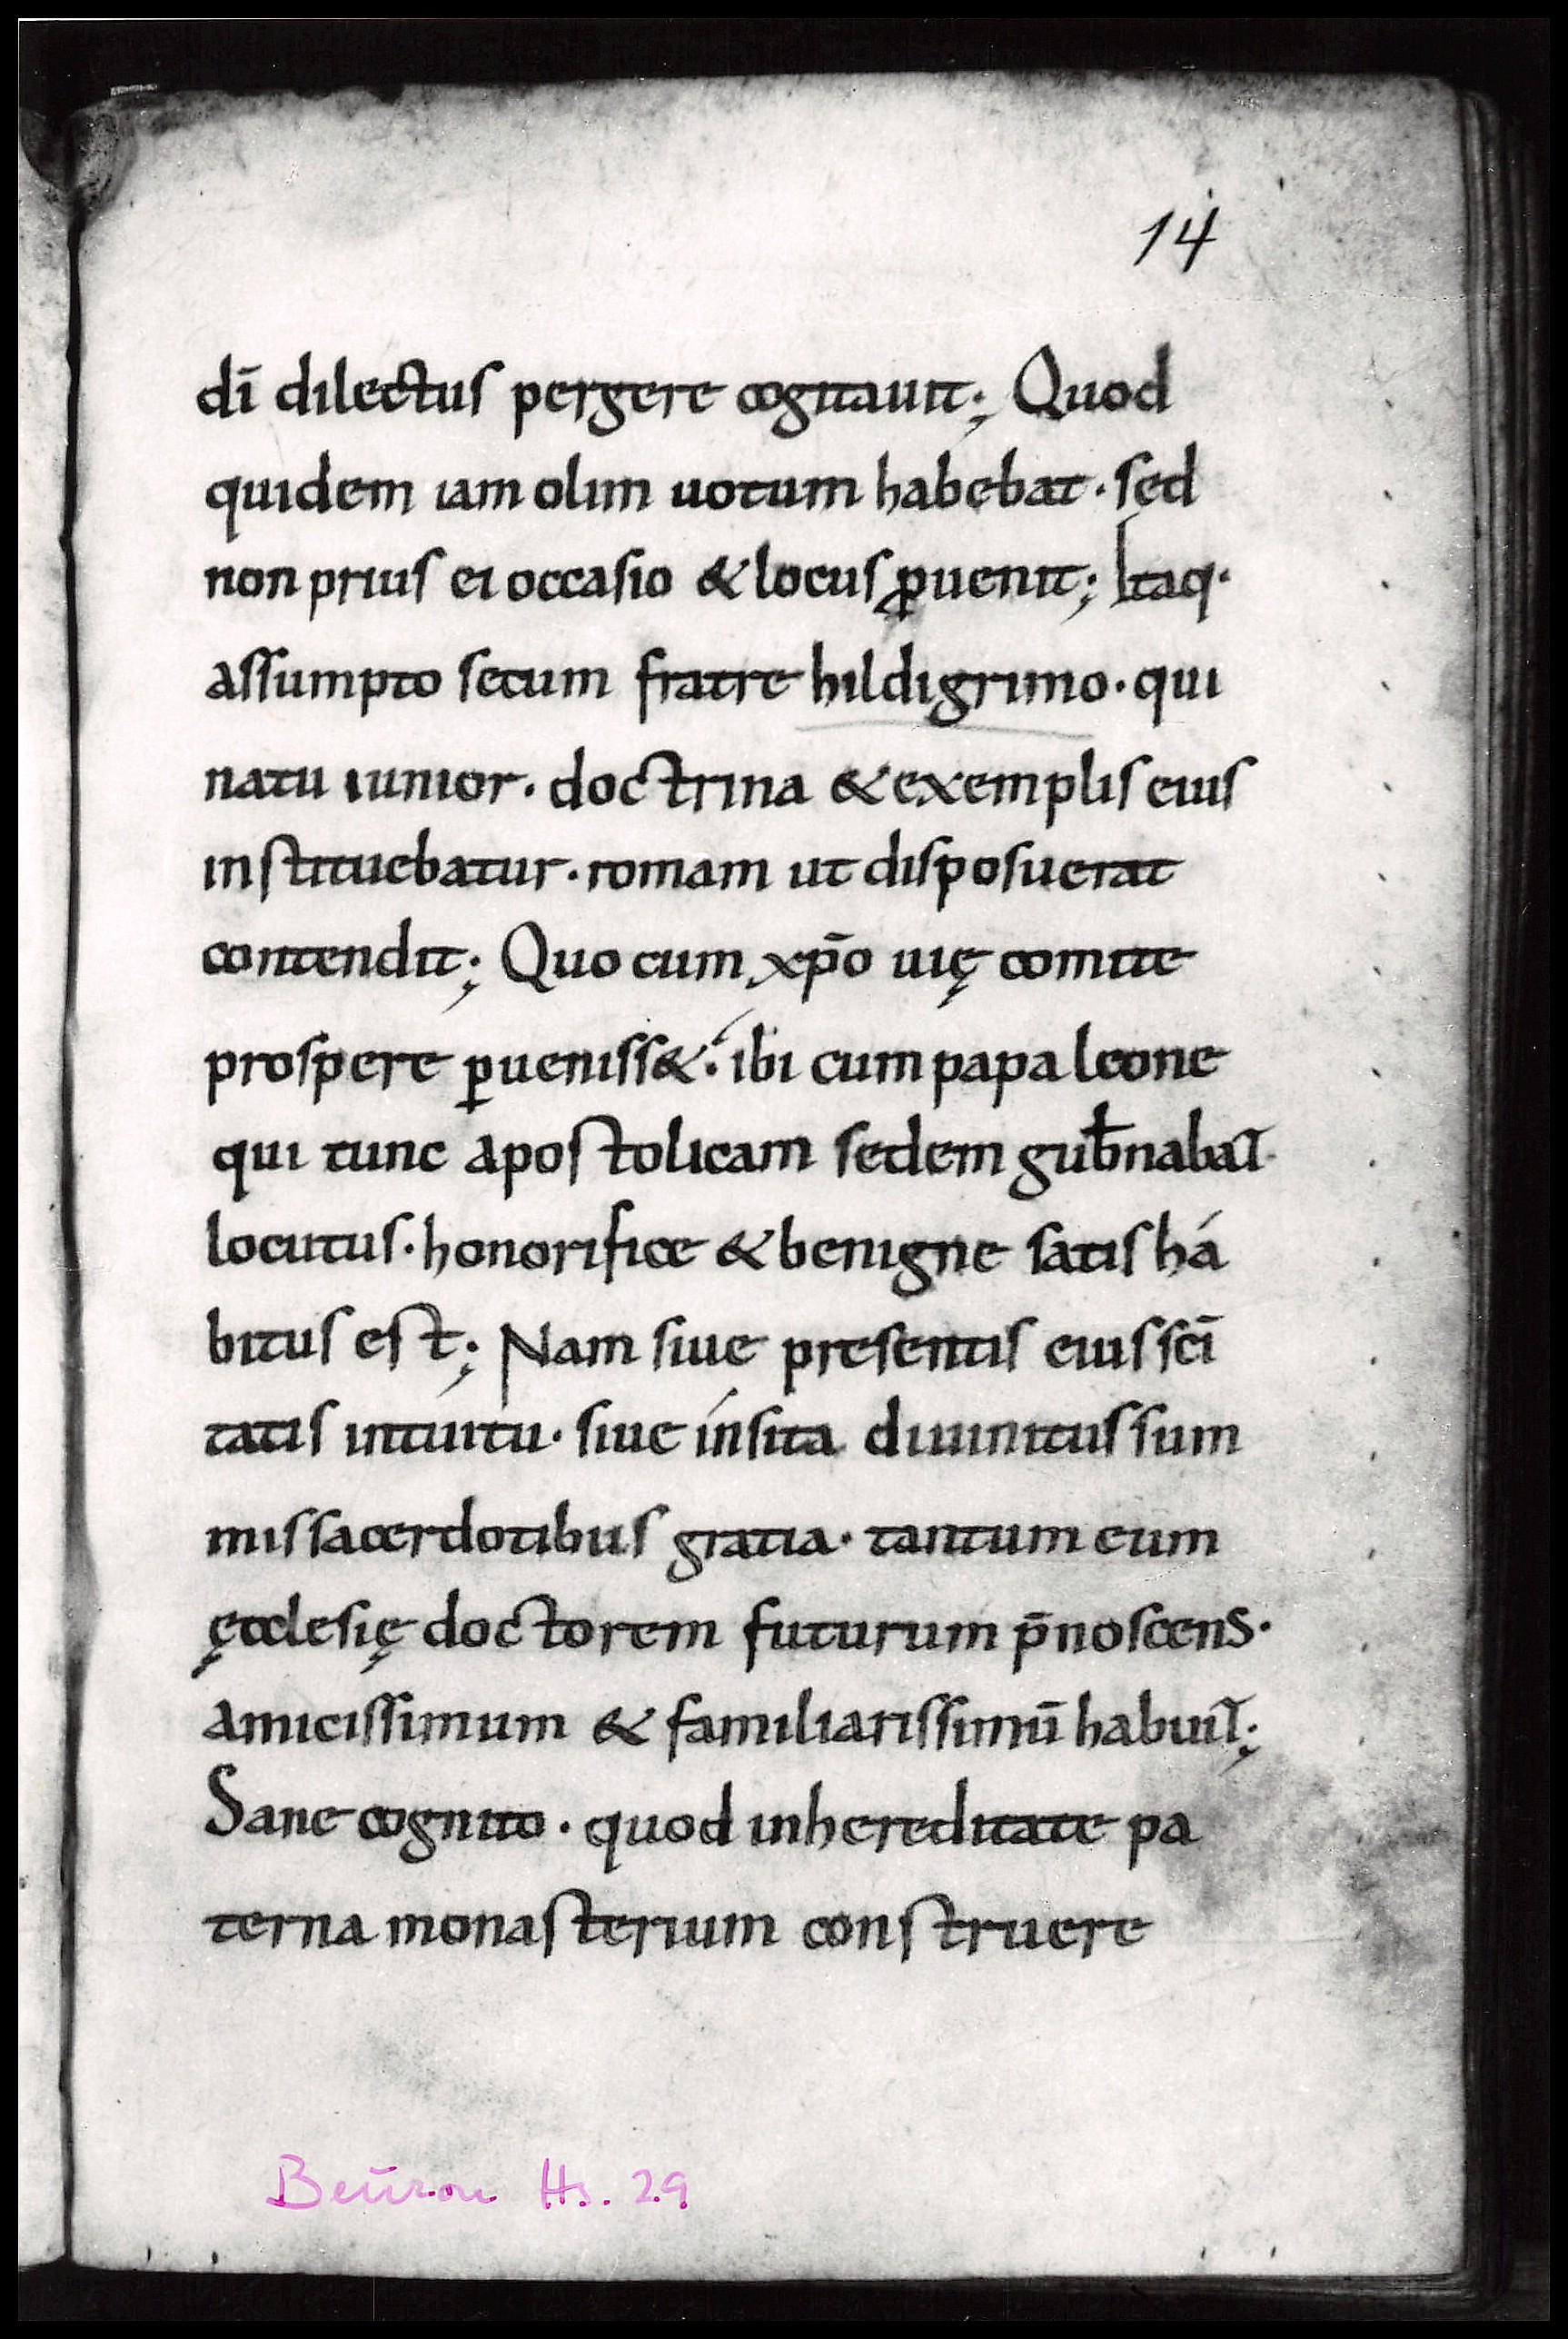 14
dī dilectus pergere cogitauit; Quod
quidem iam olim uotum habebat · sed
non prius ei occasio & locus ꝓuenit; Itaq·
assumpto secum fratre hildigrimo · qui
natu iunior · doctrina & exemplis eius
instituebatur · romam ut disposuerat
contendit; Quo cum xp̄o uię comite
prospere ꝑueniss&· ibi cum papa leone
qui tunc apostolicam sedem gub̄nabat·
locutus · honorifice & benigne satis há
bitus est; Nam siue presentis eius scī
tatis intuitu · siue ínsita diuinitus sum
mis sacerdotibus gratia · tantum eum
ęcclesię doctorem futurum p̄noscens ·
amicissimum & familiarissimū habuit;
Sane cognito · quod in hereditate pa
terna monasterium construere
Beuron Hs. 29